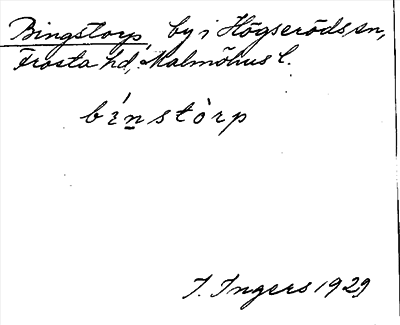 Bingstorp, by i Högseröds sn,
Frosta hd, Malmöhus l.
bı́n̲stòrp
I. Ingers 1929